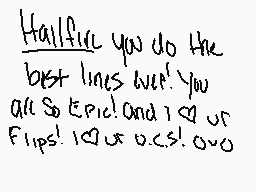 Hallfire you do the
best lines ever! You
are so Epic! and I ♡ ur
Flips! I ♡ ur O.C.s! OvO